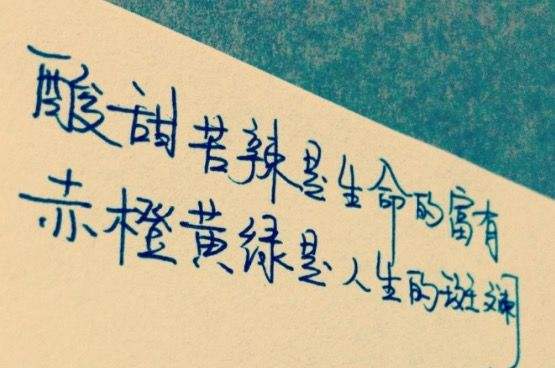 酸甜苦辣是生命的富有
赤橙黄绿是人生的斑斓